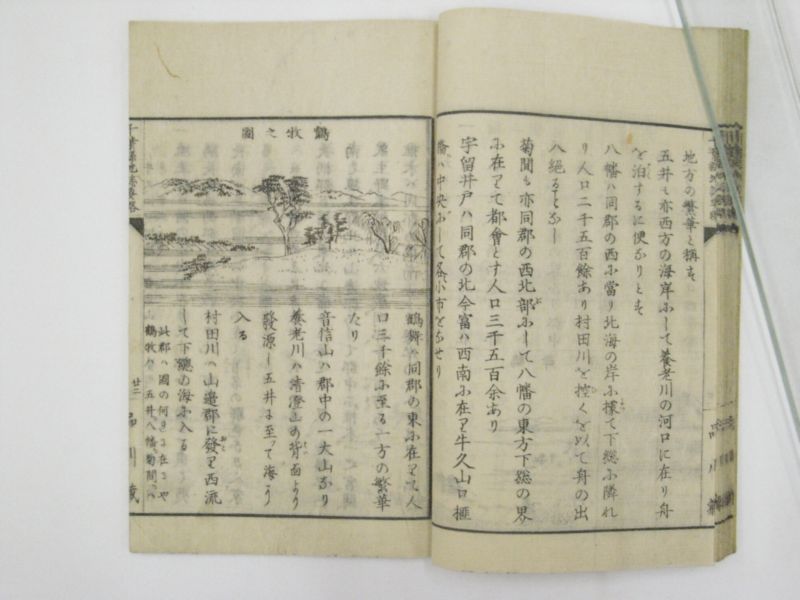 地方の繁華と稱す
五井も亦西方の海岸ふして養老川の河口に在り舟
を泊するに便なりとす
八幡ハ同郡の西ふ當り北海の岸ふ擴て下総ふ隣れ
り人口二千五百餘あり村田川を控くを以て舟の出
ハ絶ることなし
菊間も亦同郡の西北部ふして八幡の東方下総の界
ふ在りて都會とす人口三千五百余あり
宇留井戸ハ同郡の北今富ハ西南ふ在り牛久山口 椎
橋ハ中央ふして各小市をなせり
鶴牧之圖
鶴舞ハ同郡の東ふ在りて人
口三千餘ふ至る一方の繁華
たり
音信山ハ郡中の一大山なり
養老川ハ清澄山の背面より
發源し五井ふ至って海ふ
入る
村田川ハ山邊郡に發り西流
して下總の海ふ入る
此郡ハ國の何方に在るや
鶴牧ハ 五井八幡菊間ハ
廿二